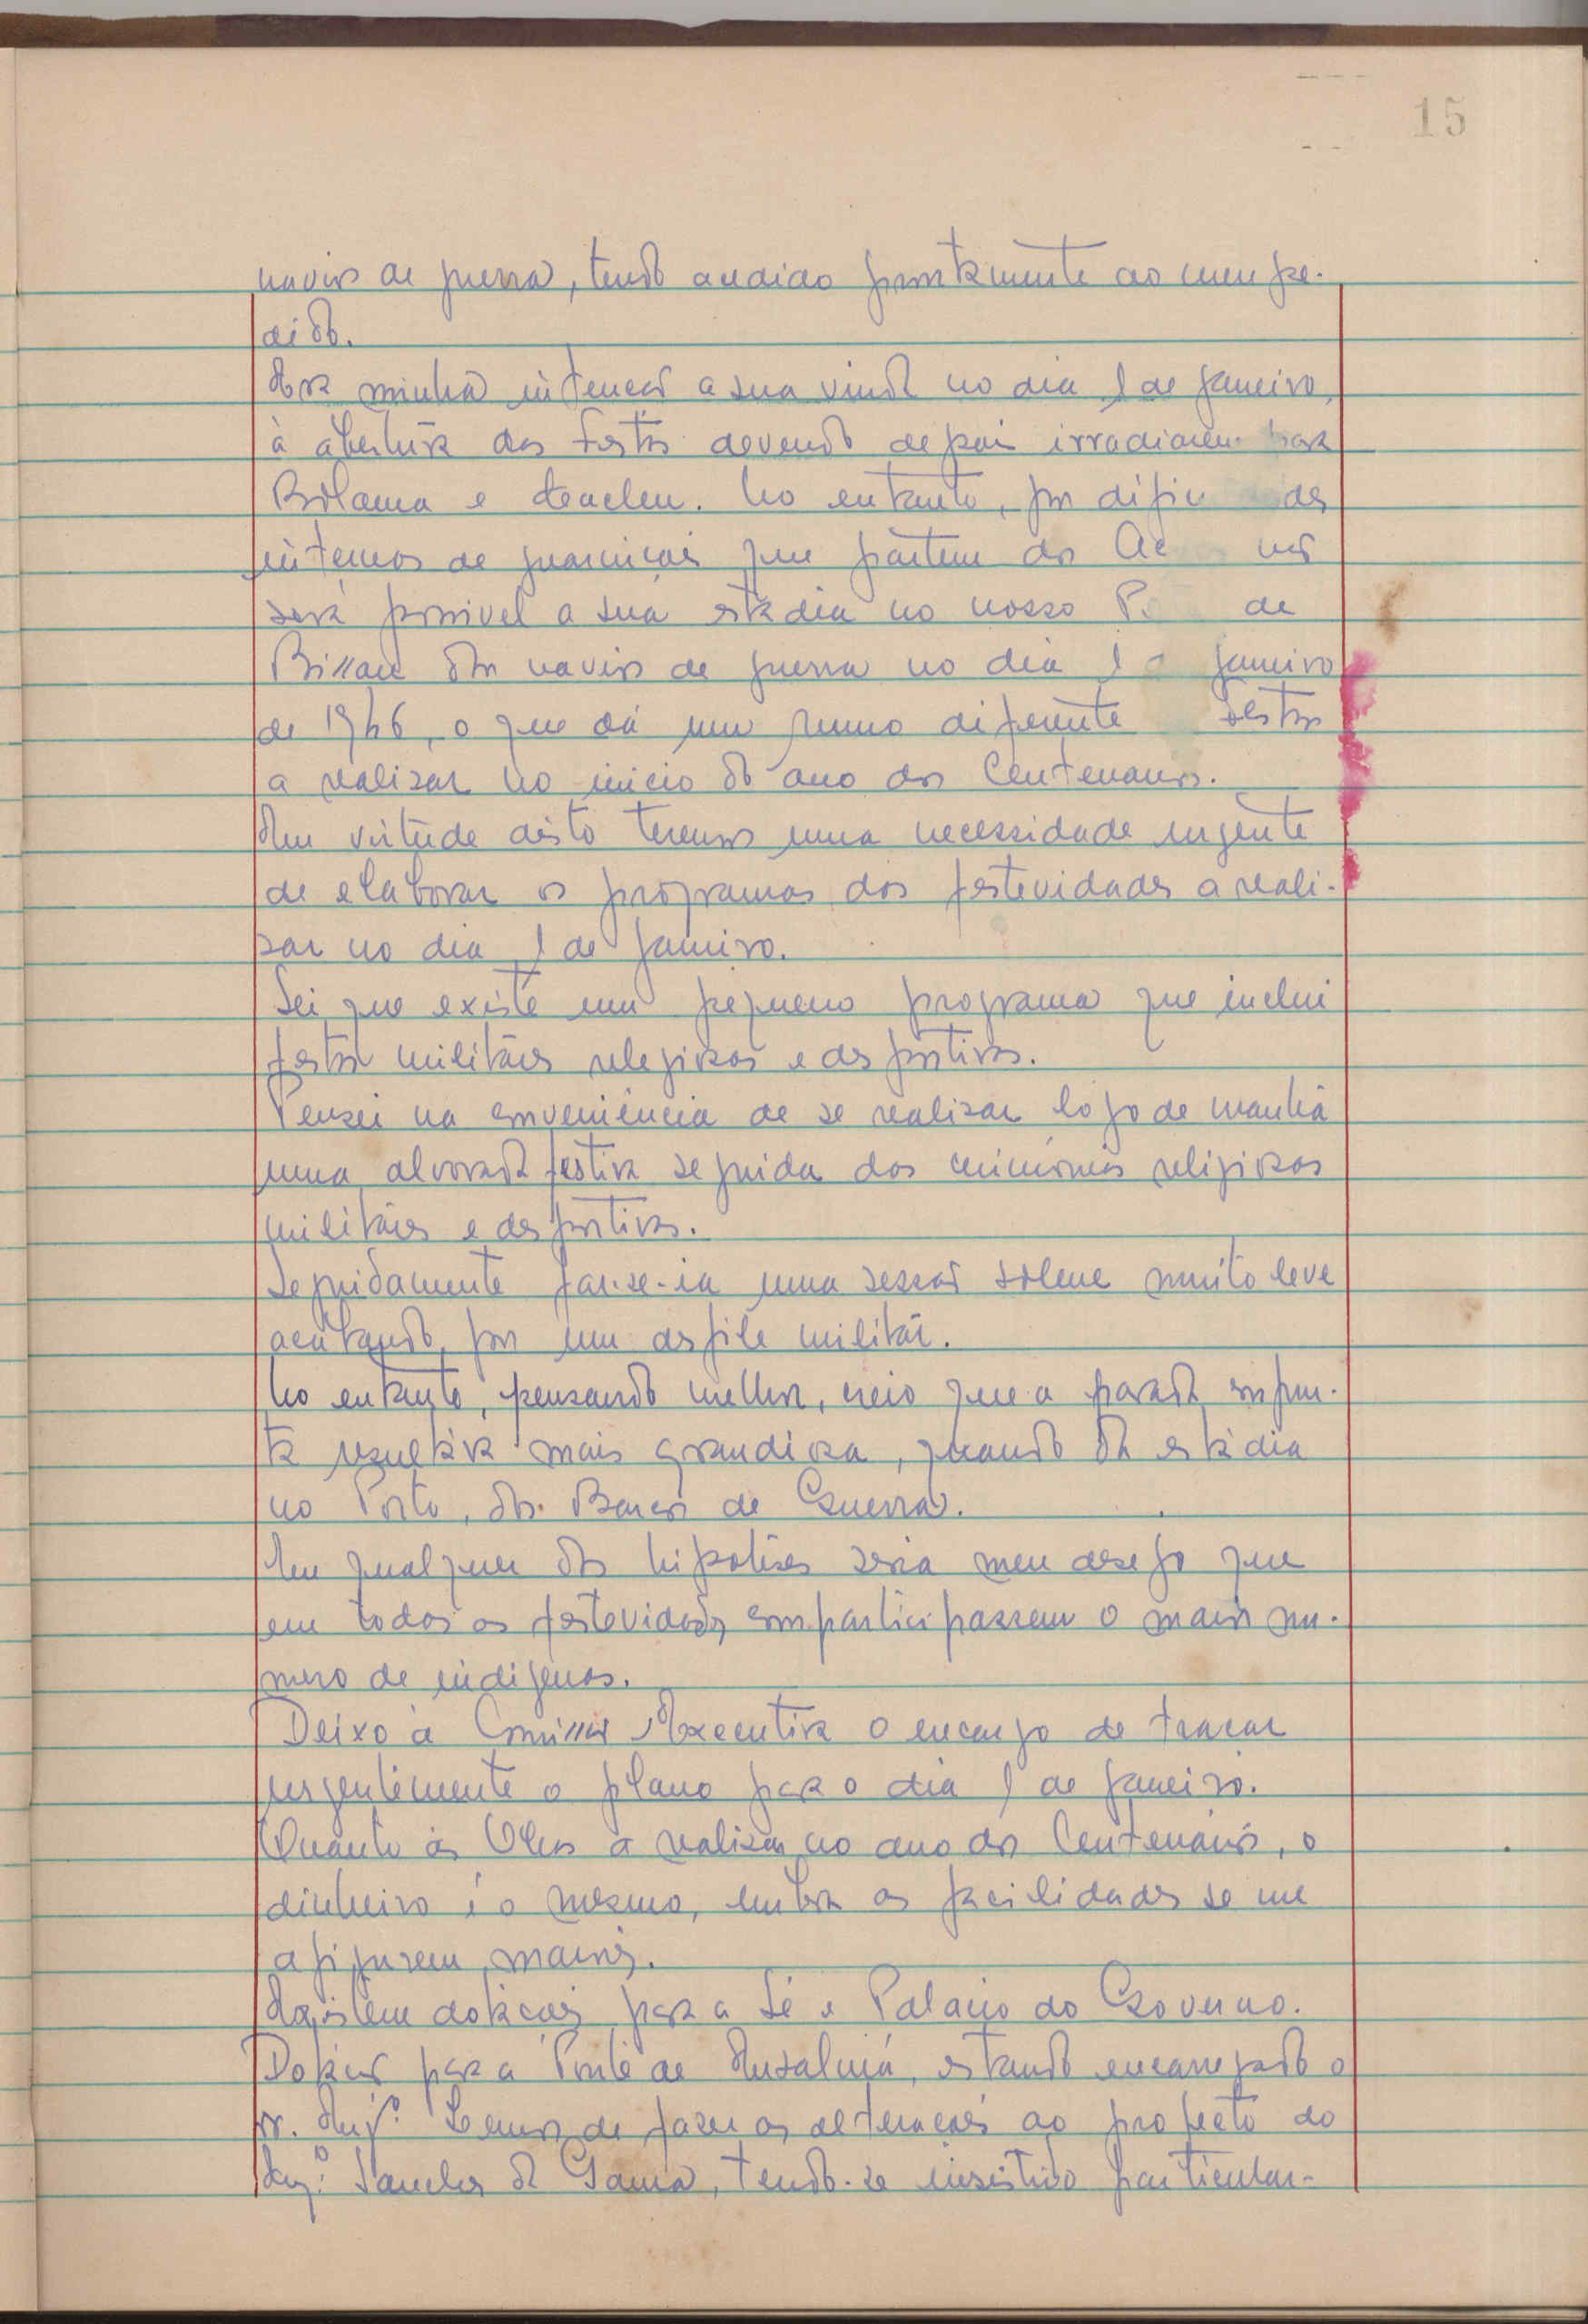 15
navios de guerra, tendo acedido prontamente ao meu pe-
dido.
Era minha intenção a sua vinda no dia 1 de Janeiro,
à abertura das festas devendo depois irradiarem para
Bolama e Cacheu. No entanto, por
internas de guarnições que partem dos não
será possivel a sua estadia no nosso de
Bissau dos navios de guerra no dia 1 Janeiro
de 1946, o que dá um rumo diferente festas
a realizar no inicio do ano dos Centenarios.
Em virtude disto temos uma necessidade urgente
de elaborar os programas das festevidades a reali-
zar no dia 1 de Janeiro.
Sei que existe um pequeno programa que inclui
festas militares relegiosas e desportivas.
Pensei na conveniência de se realizar logo de manhã
uma alvorada festiva seguida das cerimónias religiosas
militares e desportivas.
Seguidamente far-se-ia uma sessão solene muito leve
acabando por um desfile militar.
No entanto, pensando melhor, creio que a parada conjun-
ta resultára mais grandiosa, quando da estádia
no Porto, dos Barcos de Guerra.
Em qualquer das hipoteses seria meu desejo que
em todas as festevidades comparticipassem o maior nu-
mero de indigenas.
Deixo à Comissão Executiva o encargo de traçar
urgentemente o plano para o dia 1 de Janeiro.
Quanto às Obras a realizar no ano dos Centenários, o
dinheiro é o mesmo, embora as facilidades se me
afigurem maiores.
Existem dotações para a Sé e Palacio do Governo.
Dotação para a Ponte de Ensalmá, estando encarregado o
sr. Engº. Lemos de fazer as alterações ao projecto do
Engº. Sanches da Gama, tendo-se insistido particular-